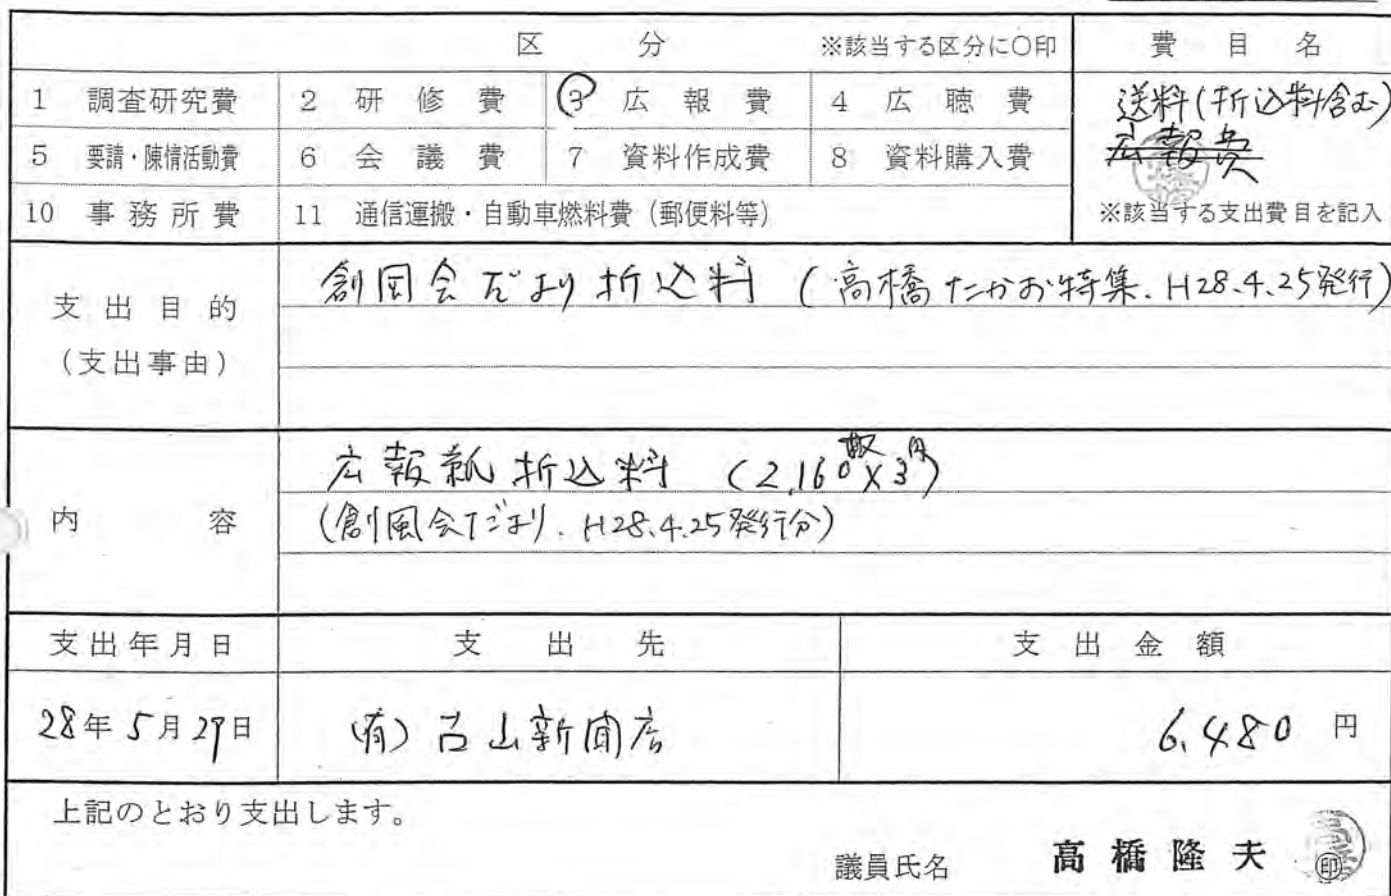 区 分 ※該当する区分に○印 費目名
1 調査研究費 2 研修費 3 広報費 4 広聴費 送料(折込料含む)
5 要請・陳情活動費 6 会議費 7 資料作成費 8 資料購入費 広報費
10 事務所費 11 通信運搬・自動車燃料費(郵便料等) ※該当する支出費目を記入
支出目的 創風会だより折込料 (高橋たかお特集、H28.4.25発行)
(支出事由)
広報紙折込料 (2,160枚×3円)
内容 (創風会だより、H28.4.25発行分)
支出年月日 支出先 支出金額
28年5月29日 (有)古山新聞店 6,480円
上記のとおり支出します。
議員氏名 高橋隆夫 印